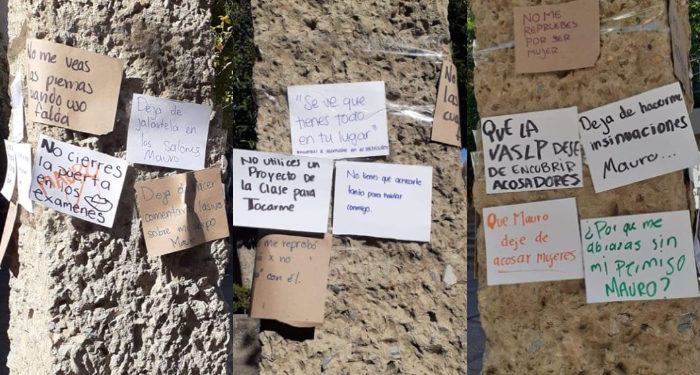 No me veas
las piernas
cuando uso
falda
Deja de
jalártela en
los salones
Mauro
No cierres
la puerta
en los
exámenes
Deja de hacer
comentarios
sobre mi
cuerpo
"Se ve que
tienes todo
en tu lugar"
No utilices un
Proyecto de
la Clase para
Tocarme
No tienes que acercarte
tanto para hablar
conmigo.
me reprobó
x no
con él.
No
las
NO ME
REPRUEBES
POR SER
MUJER.
QUE LA
VASLP DEJE
DE ENCUBRIR
ACOSADORES
Deja de hacerme
insinuaciones
Mauro...
Que Mauro
deje de
acosar mujeres
¿Por que me
abrazas sin
mi permiso
MAURO?